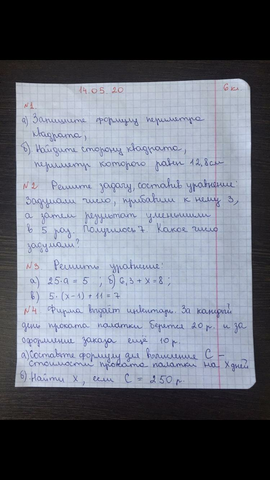 14.05.20 6 кл.
№1
а) Запишите формулу периметра
квадрата,
б) Найдите сторону квадрата,
периметр которого равен 12,8см
№2 Решите задачу, составив уравнение
Задумали число, прибавили к нему 3,
а затем результат уменьшили
в 5 раз. Получилось 7 Какое число
задумали?
№3 Решить уравнение:
а) 25-а = 5 , б) 6,3 + х = 8 ;
в) 5·(х-1)+11=7
№4. Фирма выдаёт инвентарь. За каждый
день проката палатки берется 20 р. и за
оформление заказа ещё 10 р.
а) Составьте формулу для вычисления С -
стоимости проката палатки на х дней
б) Найти х, если С = 250 р.